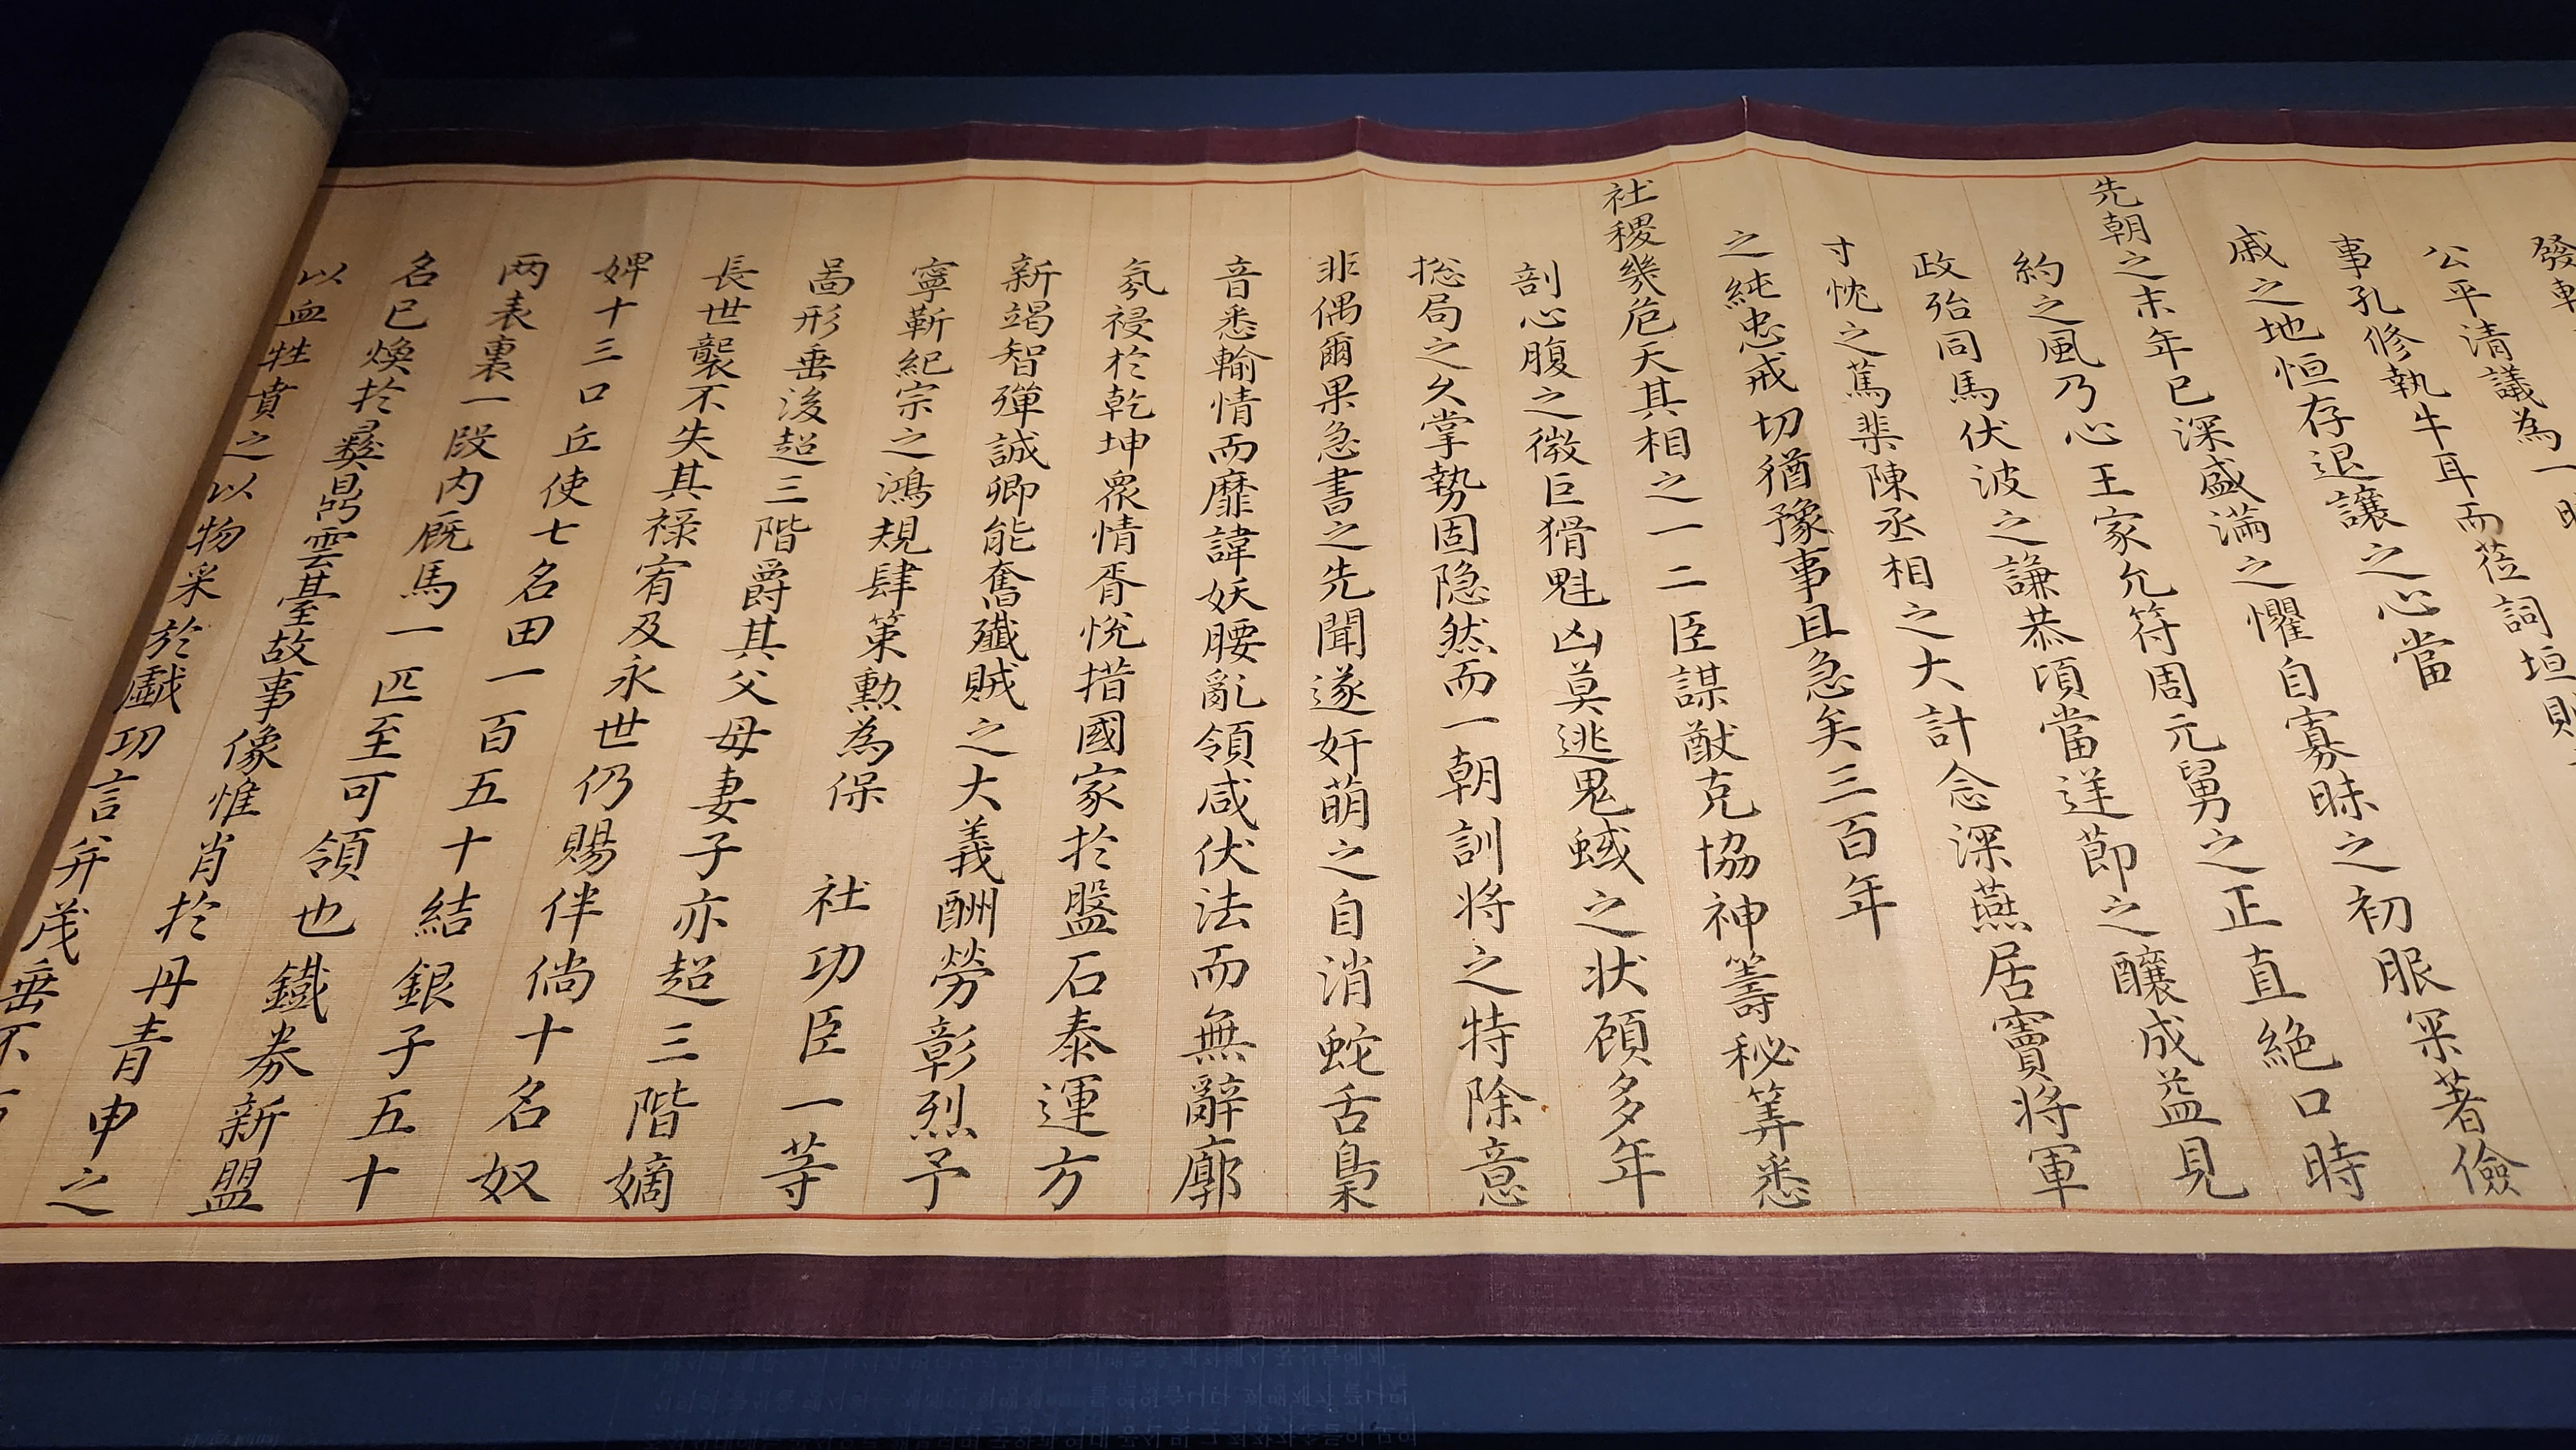 公平清議為一
事孔修執牛耳而莅詞垣則
戚之地恒存退讓之心當
先朝之末年已深盛滿之懼自寡昧之初服冞著儉
約之風乃心王家允符周元舅之正直絶口時
政殆同馬伏波之謙恭頃當迋節之釀成益見
寸忱之蔿棐陳丞相之大計念深燕居竇將軍
之純忠戒切猶豫事且急矣三百年
社稷幾危天其相之一二臣謀猷克協神籌秘筭悉
剖心腹之徵巨猾魁凶莫逃鬼蜮之状頋多年
捴局之久掌勢固隐然而一朝訓将之特除意
非偶爾果急書之先聞遂奸萌之自消蛇舌梟
音悉輸情而靡諱妖腰亂領咸伏法而無辭廓
氛祲於乾坤衆情胥悅措國家於盤石泰運方
新竭智彈誠卿能奮殲賊之大義酬勞彰烈予
寧靳紀宗之鴻規肆策勲為保 社功臣一等
啚形垂後超三階爵其父母妻子亦超三階嫡
長世襲不失其禄宥及永世仍賜伴倘十名奴
婢十三口丘使七名田一百五十結銀子五十
两表裏一叚内厩馬一匹至可領也鐵劵新盟
名已煥於彛鼎雲䑓故事像惟肖於丹青申之
以血牲賁之以物采於戱功言并茂垂不